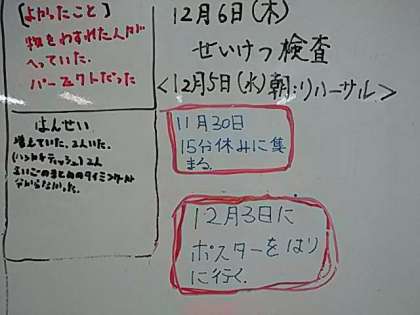 [よかったこと]
物をわすれた人が
へっていた。
パーフェクトだった
はんせい
増えていた。2人いた。
(ハンカチティッシュ)2人
さいごのまとめのタイミングが
分からなかった。
12月6日(木)
せいけつ検査
<12月5日(水)朝:リハーサル>
11月30日
15分休みに集
まる。
12月3日に
ポスターをはり
に行く。